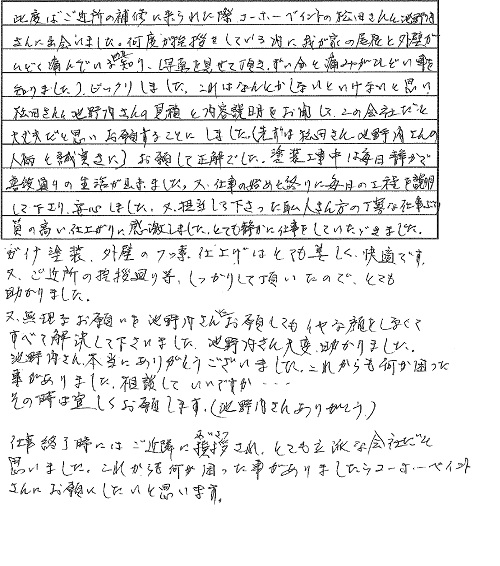 此度はご近所の補修に来られた際コーホーペイントの松田さんと池野内
さんに出会いました。何度か挨拶をしている内に我が家の屋根と外壁が
ひどく痛んでいる事を知り、(写真を見せて頂き、ずい分と痛みがひどい事を
知りました)ビックリしました。これはなんとかしないといけないと思い
松田さんと池野内さんの見積と内容説明をお聞して、この会社だと
大丈夫だと思いお願することにしました。(先ずは松田さん、池野内さんの
人柄と誠実さに) お願して正解でした。塗装工事中は毎日静かで
普段通りの生活が出きました。又、仕事の始めと終りに毎日の工程を説明
して下さり、安心しました。又、担当して下さった職人さん方の丁寧な仕事より
質の高い仕上がりに感激しました。とても静かに仕事をしていただきました。
がけ塗装、外壁のフッ素仕上げはとても美しく、快適です。
又、ご近所の挨拶廻り等、しっかりして頂いたので、とても
助かりました。
又、無理なお願いを池野内さんにお願してもイヤな顔をしなくて
すべて解決して下さいました。池野内さん大変、助かりました。
池野内さん本当にありがとうございました。これからも何か困った
事がありました、相談していいですか・・・
その時は宜しくお願します。(池野内さんありがとう)
仕事終了時にはご近隣に挨拶され、とても立派な会社だと
思いました。これからも何か困った事がありましたらコーホーペイント
さんにお願いしたいと思います。